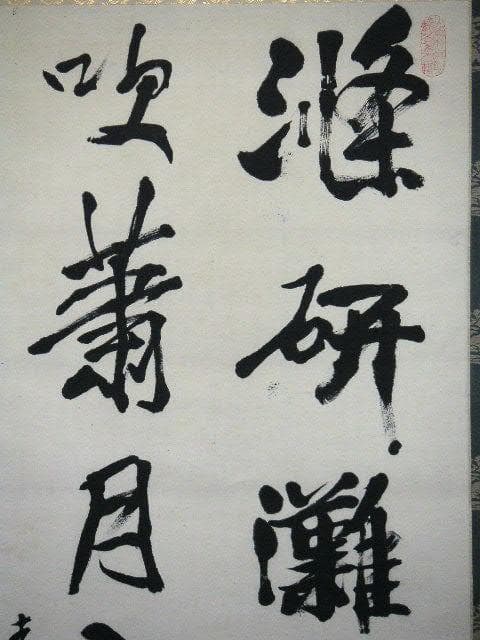 滌研灘
吹簫月